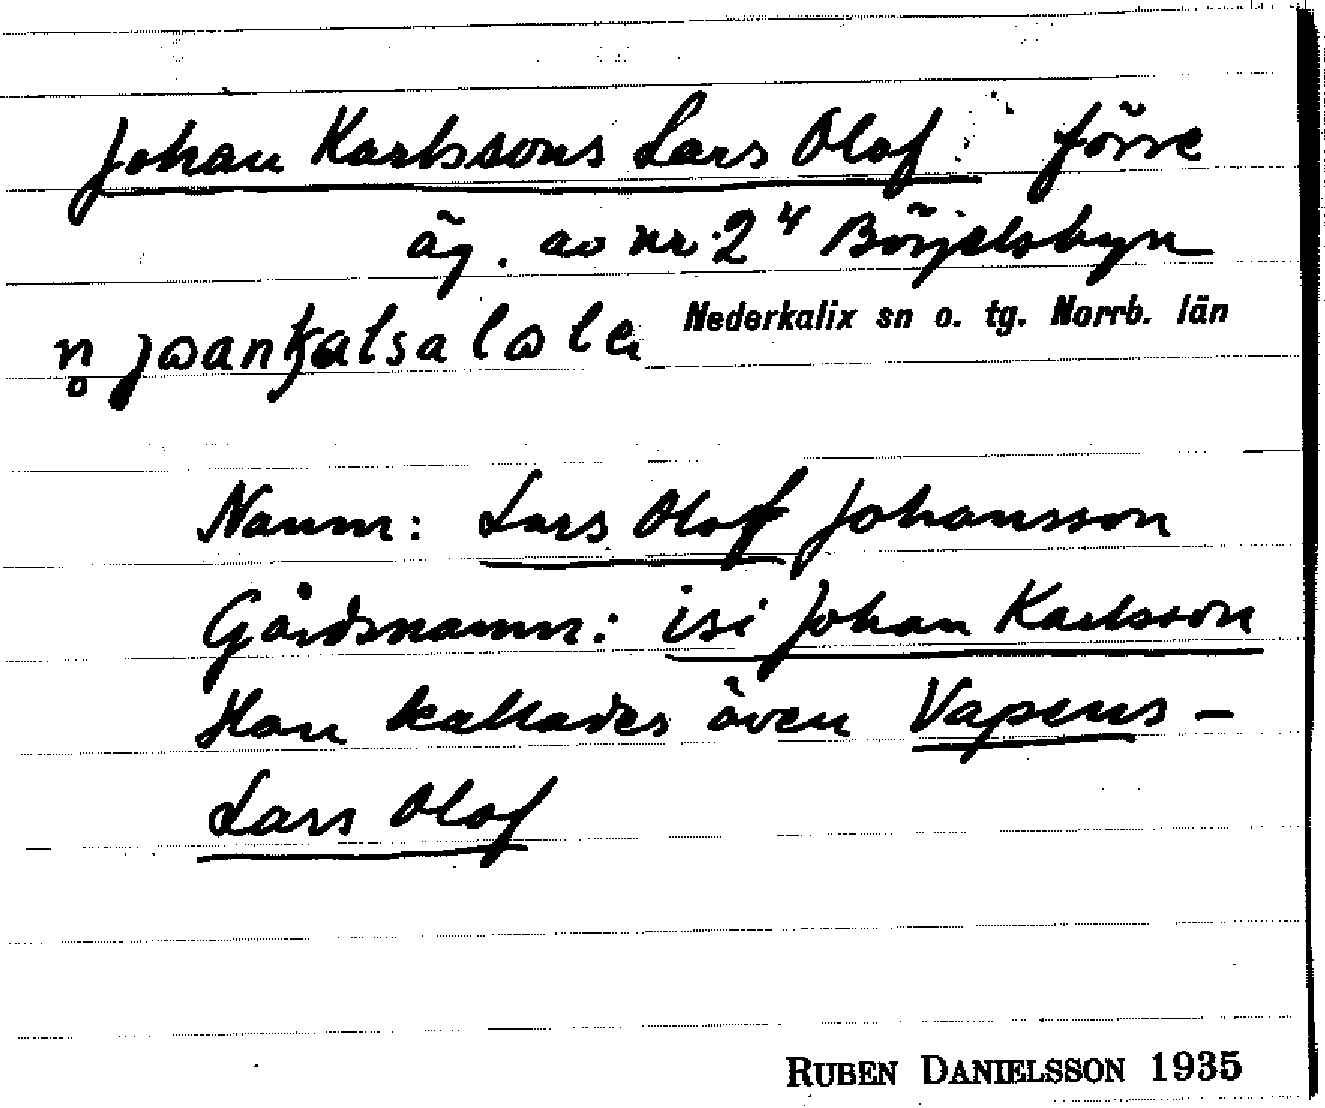 Johan Karlssons Lars Olof förre
äg. av nr 2⁴ Börjelsbyn
Nederkalix sn o. tg. Norrb. län
Namn: Lars Olof Johansson
Gårdsnamn: isi Johan Karlsson
Han kallades även Vapens-
Lars Olof
RUBEN DANIELSSON 1935